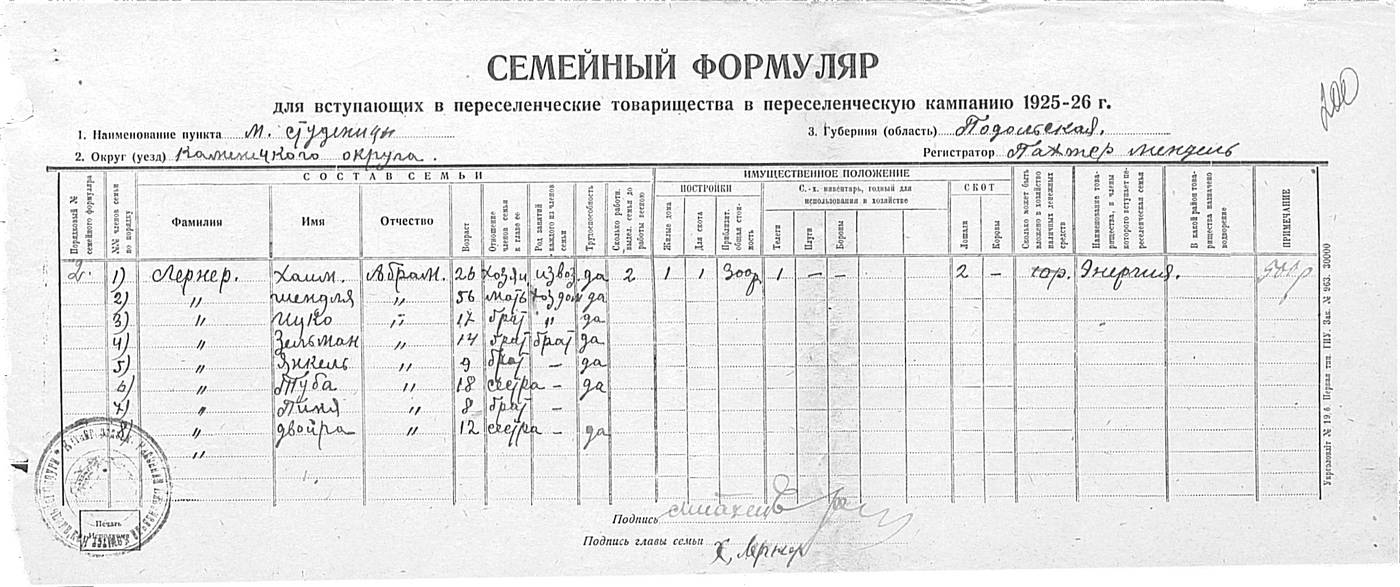 СЕМЕЙНЫЙ ФОРМУЛЯР
200
для вступающих в переселенческие товарищества в переселенческую кампанию 1925-26 г.
1. Наименование пункта м. Студеницы
3. Губерния (область) Подольская.
2. Округ (уезд) Каменецкого округа.
Регистратор Пахтер Мендель
Порядковый № семейного формуляра
№№ членов семьи по порядку
СОСТАВ СЕМЬИ
Фамилия
Имя
Отчество
Возраст
Отношение членов семьи к главе ее
Род занятий каждого из членов семьи
Трудоспособность
Сколько работн. выдел. семья до работы весною
ИМУЩЕСТВЕННОЕ ПОЛОЖЕНИЕ
ПОСТРОЙКИ
Жилые дома
Для скота
Приблизит. общая стоимость
С.-х. инвентарь, годный для использования в хозяйстве
Телеги
Плуги
Бороны
СКОТ
Лошади
Коровы
Сколько может быть вложено в хозяйство наличных денежных средств
Наименование товарищества, в члены которого вступает переселенческая семья
В какой район товарищества назначено водворение
ПРИМЕЧАНИЕ
2. 1) Лернер. Хаим. Абрам. 26 хозяи извоз да 2 1 1 300р 1 — — 2 — Энергия. 500р
2) " Шендля " 56 мать хоз дом да
3) " Ицко " 17 брат " да
4) " Зельман " 14 брат брат да
5) " Янкель " 9 брат — да
6) " Туба " 18 сестра — да
7) " Пиня " 8 брат —
8) " Двойра " 12 сестра — да
"
Печать
Подпись
Подпись главы семьи Х. Лернер
Укрголовліт № 19.6. Первая тип. ГИУ. Зак. № 963. 30000